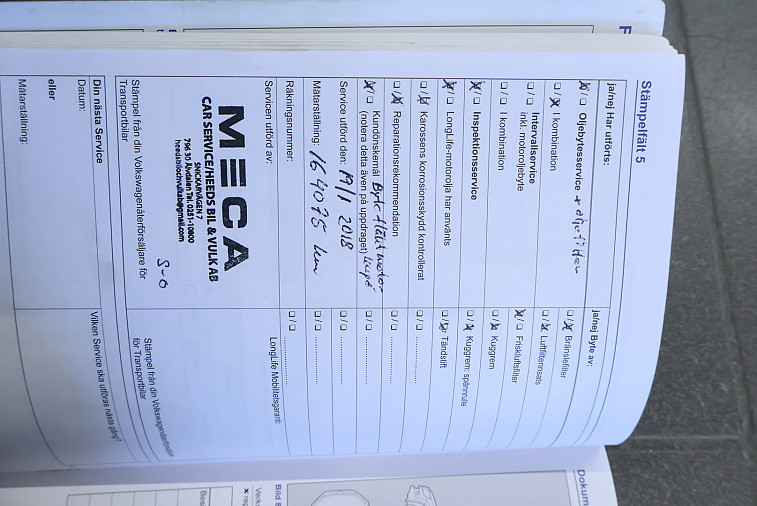 Stämpelfält 5
ja/nej Har utförts:
ja/nej Byte av:
☒/☐ Oljebytesservice + oljefilter
☐/☒ Bränslefilter
☐/☒ I kombination
☐/☒ Luftfilterinsats
☐/☐ Intervallservice
inkl. motoroljebyte
☒/☐ Friskluftsfilter
☐/☐ I kombination
☐/☒ Kuggrem
☒/☐ Inspektionsservice
☐/☒ Kuggrem: spännrulle
☒/☐ LongLife-motorolja har använts
☐/☒ Tändstift
☐/☒ Karossens korrosionsskydd kontrollerat
☐/☐ ..............
☐/☒ Reparationsrekommendation
☐/☐ ..............
☒/☐ Kundönskemål Byte fläktmotor
(notera detta även på uppdraget) kupé
☐/☐ ..............
Service utförd den: 19/1 2018
☐/☐ ..............
Mätarställning: 164075 km
☐/☐ ..............
Räkningsnummer:
☐/☐ ..............
Servicen utförd av:
LongLife Mobilitetsgaranti:
MECA
CAR SERVICE/HEEDS BIL & VULK AB
SNICKARVÄGEN 7
796 30 Älvdalen Tel. 0251-10800
heedsbilochvulkab@gmail.com
Stämpel från din Volkswagenåterförsäljare för
Transportbilar
Stämpel från din Volkswagenåterförsäljare
för Transportbilar
Din nästa Service
Vilken Service ska utföras nästa gång?
Datum:
eller
Mätarställning:
Dokum
Bild 8
Verks
Bes